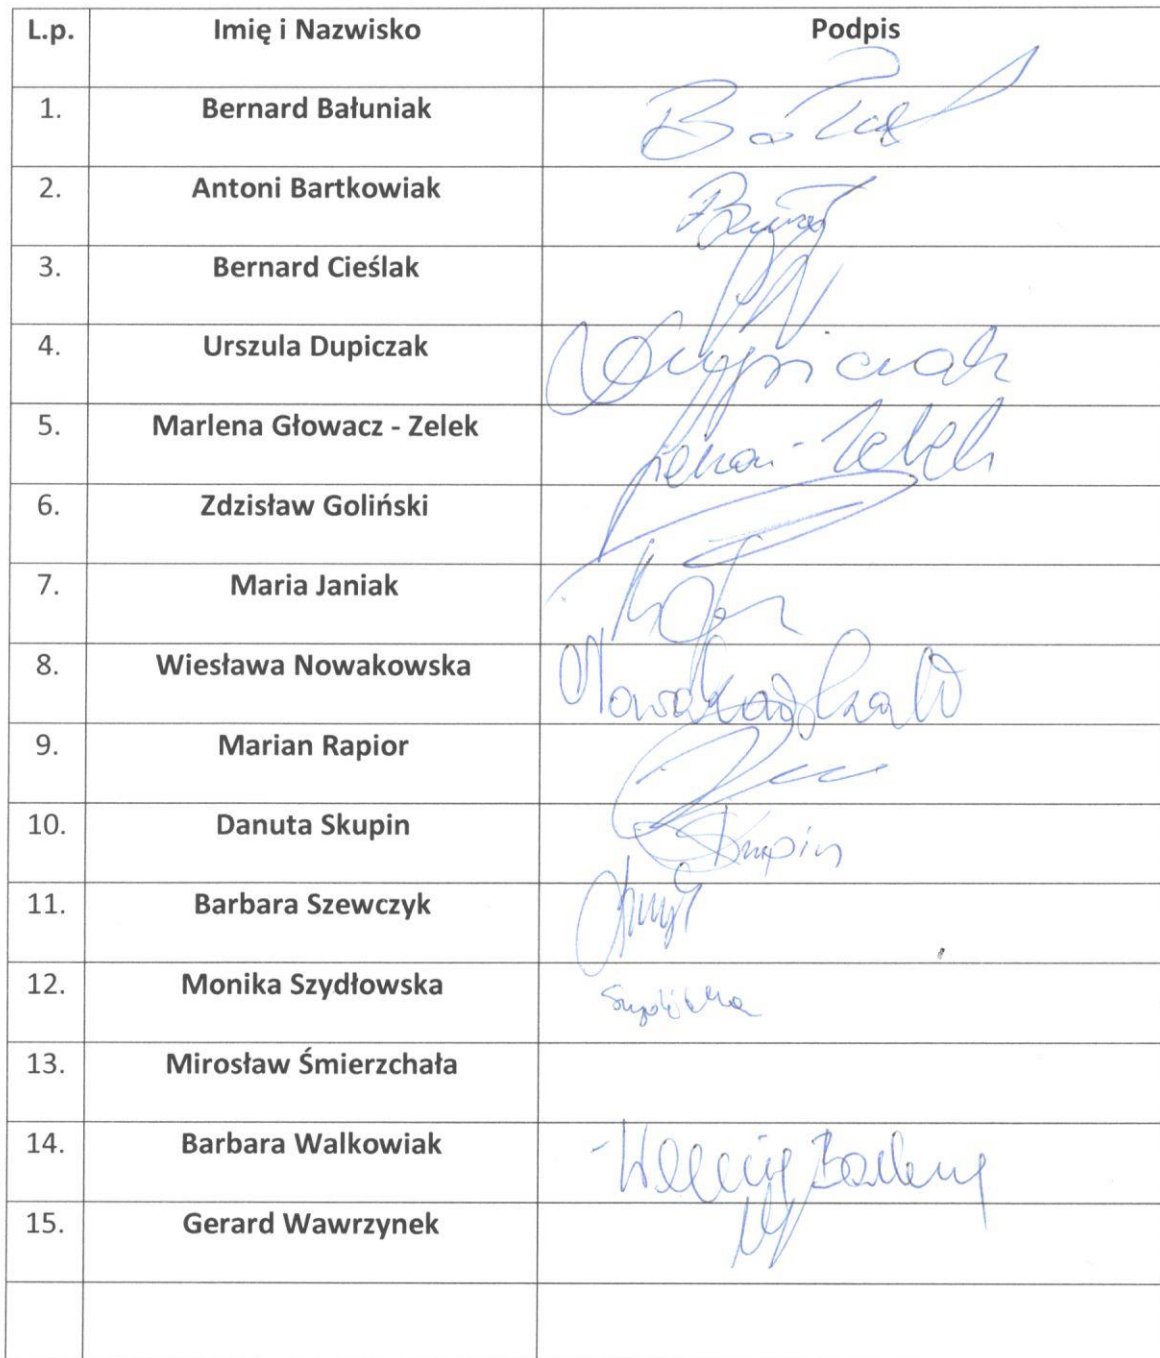 L.p. Imię i Nazwisko Podpis
1. Bernard Bałuniak
2. Antoni Bartkowiak
3. Bernard Cieślak
4. Urszula Dupiczak Dupiczak
5. Marlena Głowacz - Zelek - Zelek
6. Zdzisław Goliński
7. Maria Janiak
8. Wiesława Nowakowska Nowakowska W
9. Marian Rapior
10. Danuta Skupin Skupin
11. Barbara Szewczyk
12. Monika Szydłowska
13. Mirosław Śmierzchała
14. Barbara Walkowiak
15. Gerard Wawrzynek